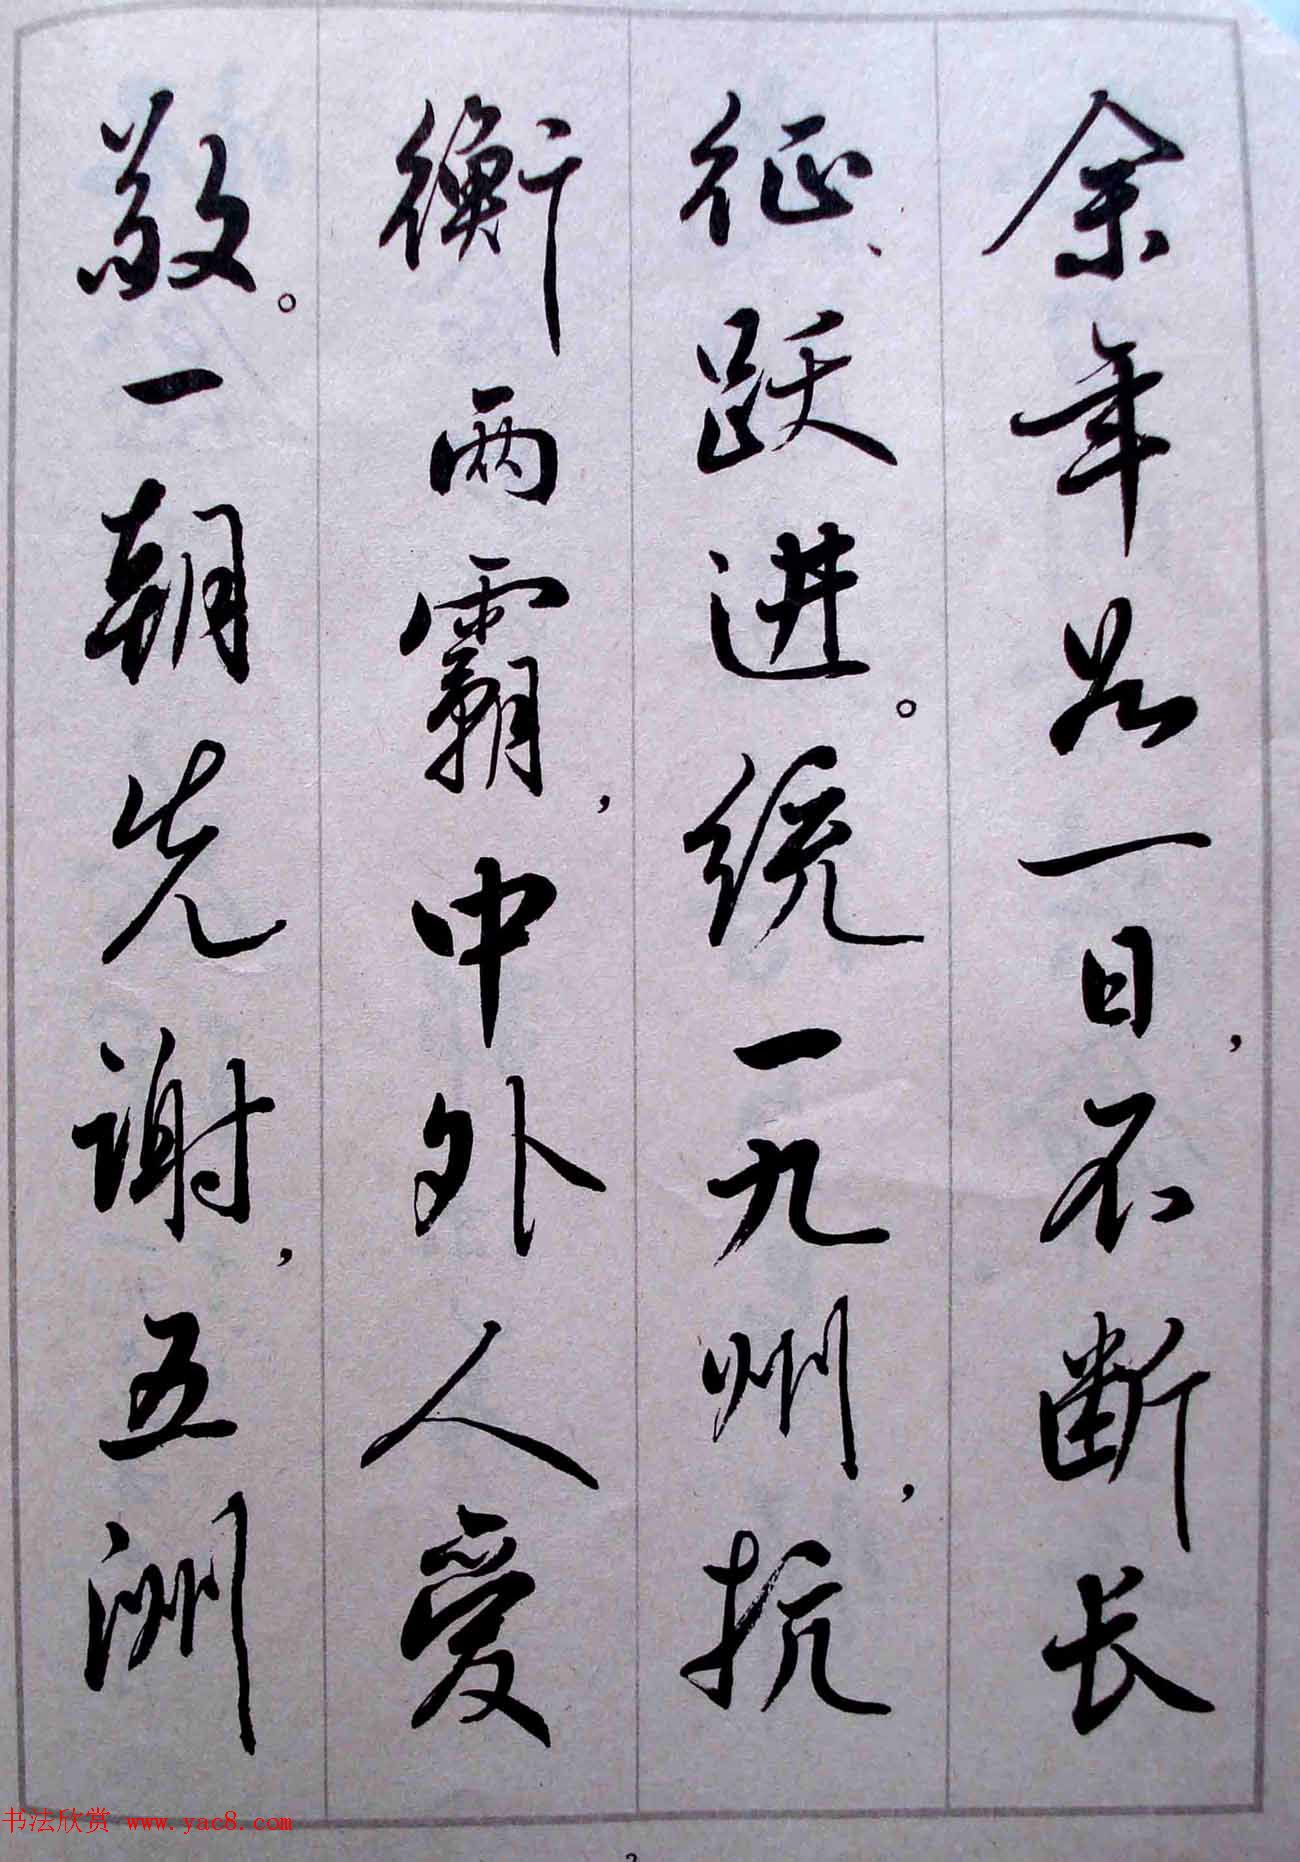 余年如一日，不断长
征、跃进。统一九州，抗
衡两霸，中外人爱
敬。一朝先谢，五洲
书法欣赏 www.yac8.com